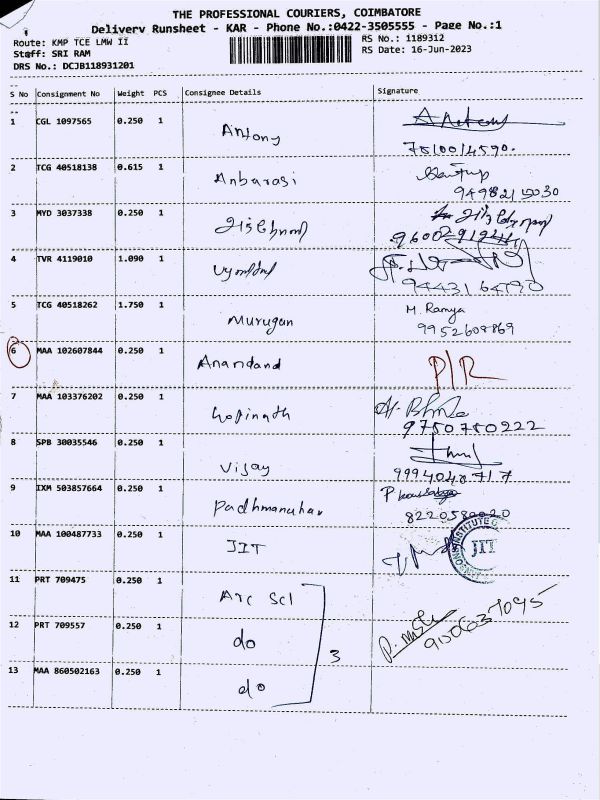 THE PROFESSIONAL COURIERS, COIMBATORE
Delivery Runsheet - KAR - Phone No.:0422-3505555 - Page No.:1
Route: KMP TCE LMW II
RS No.: 1189312
Staff: SRI RAM
RS Date: 16-Jun-2023
DRS No.: DCJB118931201
S No Consignment No Weight PCS Consignee Details Signature
1 CGL 1097565 0.250 1 Antony
7510014590.
2 TCG 40518138 0.615 1 Anbarasi
9498215030
3 MYD 3037338 0.250 1
4 TVR 4119010 1.090 1
5 TCG 40518262 1.750 1 Murugan M. Ramya
9952608869
6 MAA 102607844 0.250 1 Anandand P/R
7 MAA 103376202 0.250 1 Gopinath
9750750222
8 SPB 30035546 0.250 1 Vijay
9 IXM 503857664 0.250 1 Padhmanuhav
8220580020
10 MAA 100487733 0.250 1 JIT
JIT
11 PRT 709475 0.250 1 Arc Scl
12 PRT 709557 0.250 1 do 3
13 MAA 860502163 0.250 1 do